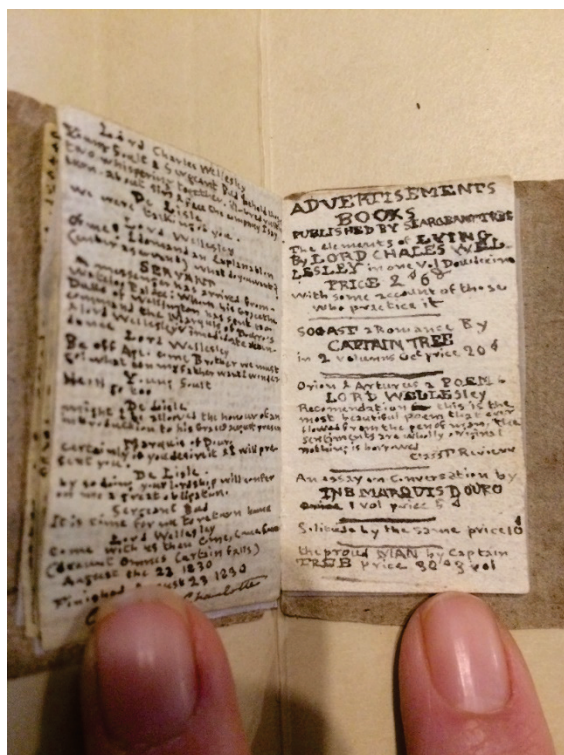 Lord Charles Wellesley
Young Soult & Sergeant Bud behold them
two whispering together.
been about
De Lisle
we were talking of you.
Lord Wellesley
Of me I demand an Explanation
(enter a servant) what do you want?
SERVANT
A messenger has arrived from
Waterloo Palace
Duke of Wellington has sent to
command the Marquis of Douro
& lord Wellesley's immediate
Lord Wellesley
Be off Ape. come Brother we must
go! what can my father want
Young Soult
De Lisle
might I be allowed the honour of an
introduction to his
Marquis of Douro
certainly if you desire it I will pre-
sent you.
De Lisle.
by so doing your lordship will confer
on me a great obligation.
Sergeant Bud
It is time for us to return home
Lord Wellesley
Come with us then
(exeunt Omnes Curtain falls)
August the 23 1830
Finished August 23 1830
Charlotte
ADVERTISEMENTS
BOOKS
PUBLISHED BY SEARGEANT TREE
The elements of LYING
By LORD CHALES WELL-
LESLEY in one vol Doudecimo
PRICE 2s 6d
with some account of those
who practice it
a Romance By
CAPTAIN TREE
in 2 volumes Oct price 20s
Orion & Arturus a POEM
LORD WELLESLEY
Recomendation this is the
most beautiful poem that ever
flowed from the pen of man, the
sentiments are wholly original
nothing is borrowed
Review
An essay on Conversation by
THE MARQUIS DOURO
1 vol price 5s
Solitude by the same price 10s
the proud MAN by Captain
TREE price 30s 3 vol